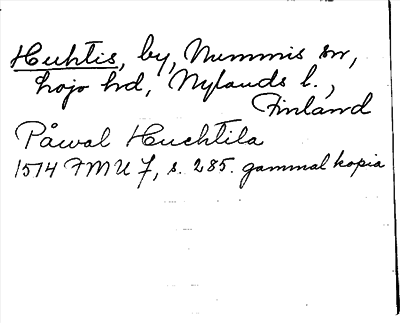 Huhtis, by, Nummis sn,
Lojo hd, Nylands l.,
Finland
Påwal Huchtila
1514 FMU 7, s. 285. gammal kopia